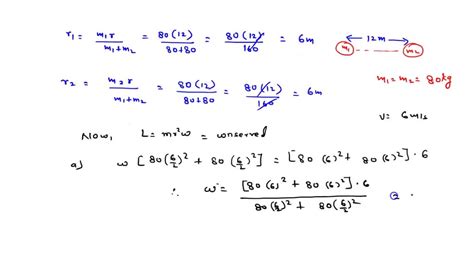 r₁ = m₁r / (m₁+m₂) = 80(12) / (80+80) = 80(12) / 160 = 6m
12m
m₁ m₂
r₂ = m₂r / (m₁+m₂) = 80(12) / (80+80) = 80(12) / 160 = 6m
m₁ = m₂ = 80kg
v = 6m/s
Now, L = mr²w = conserved
a) w [80(6/2)² + 80(6/2)²] = [80 (6)² + 80 (6)²] · 6
∴ w = [80 (6)² + 80 (6)²] · 6 / (80(6/2)² + 80(6/2)²)